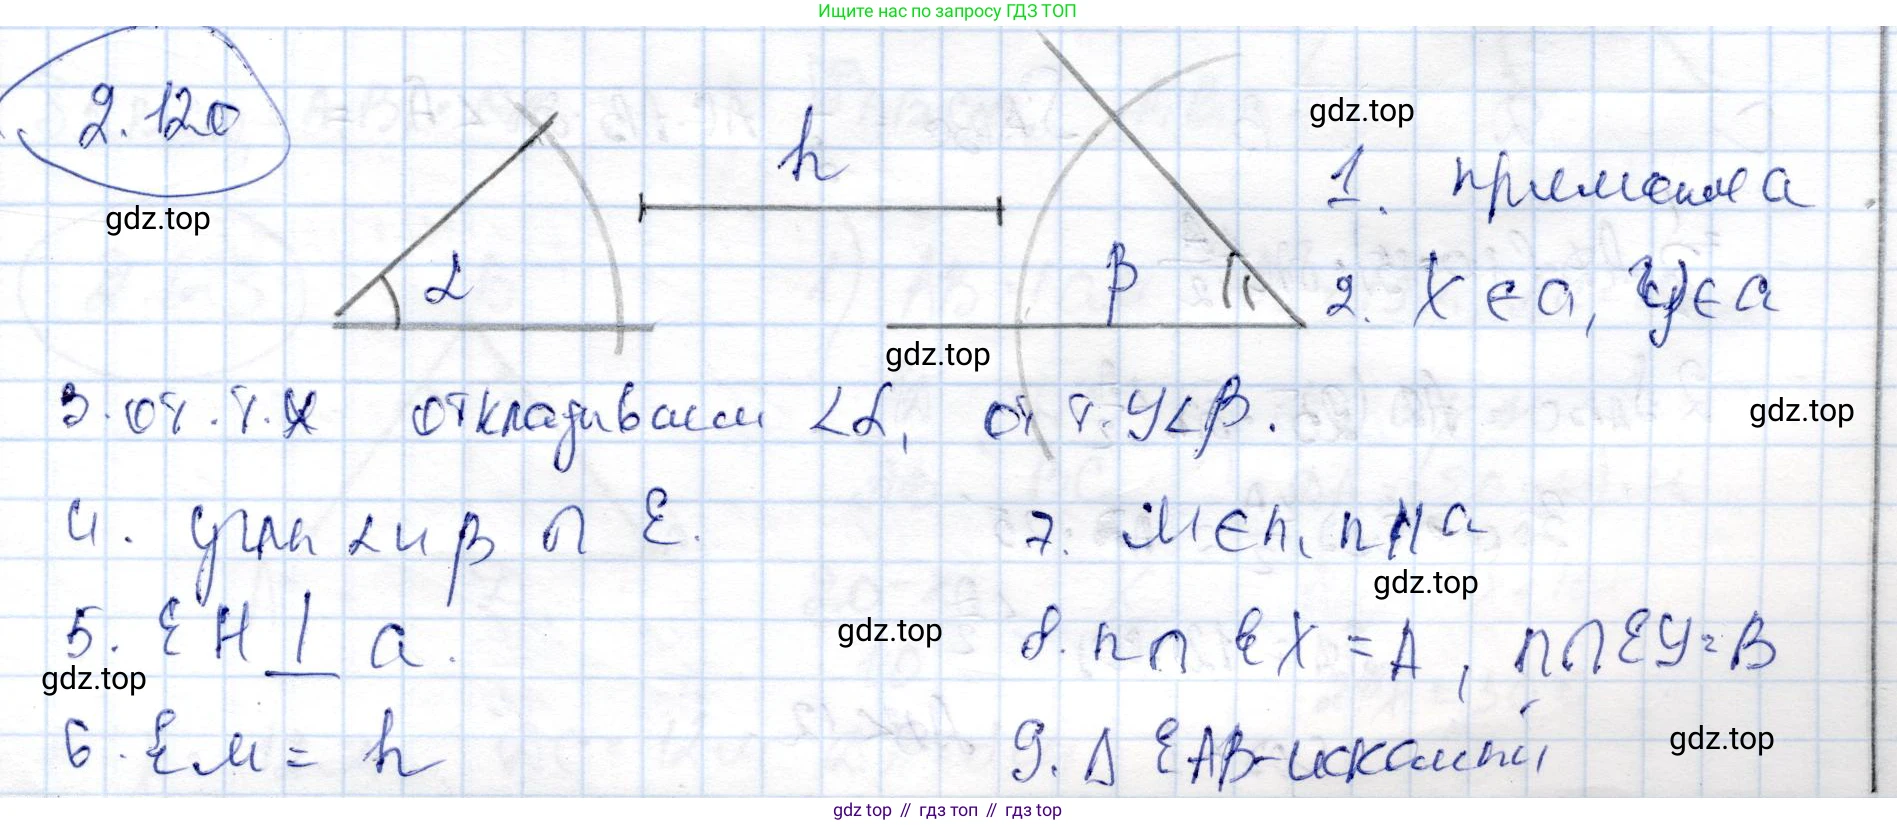 Ищите нас по запросу ГДЗ ТОП
2.120
gdz.top
α
h
β
gdz.top
1. прямая a
2. X ∈ a, Y ∈ a
gdz.top
3. от т. X откладываем ∠α, от т. Y ∠β.
gdz.top
4. углы α и β ∩ E.
5. EH ⊥ a.
gdz.top
6. EM = h
gdz.top
7. M ∈ n, n || a
gdz.top
8. n ∩ EX = A, n ∩ EY = B
9. Δ EAB - искомый
gdz.top
gdz top // гдз топ // гдз top